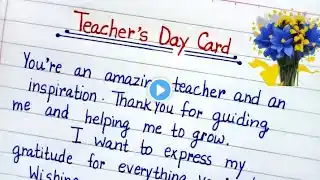 Teacher's Day Card
You're an amazing teacher and an
inspiration. Thank you for guiding
me and helping me to grow.
I want to express my
gratitude for everything
Wishing